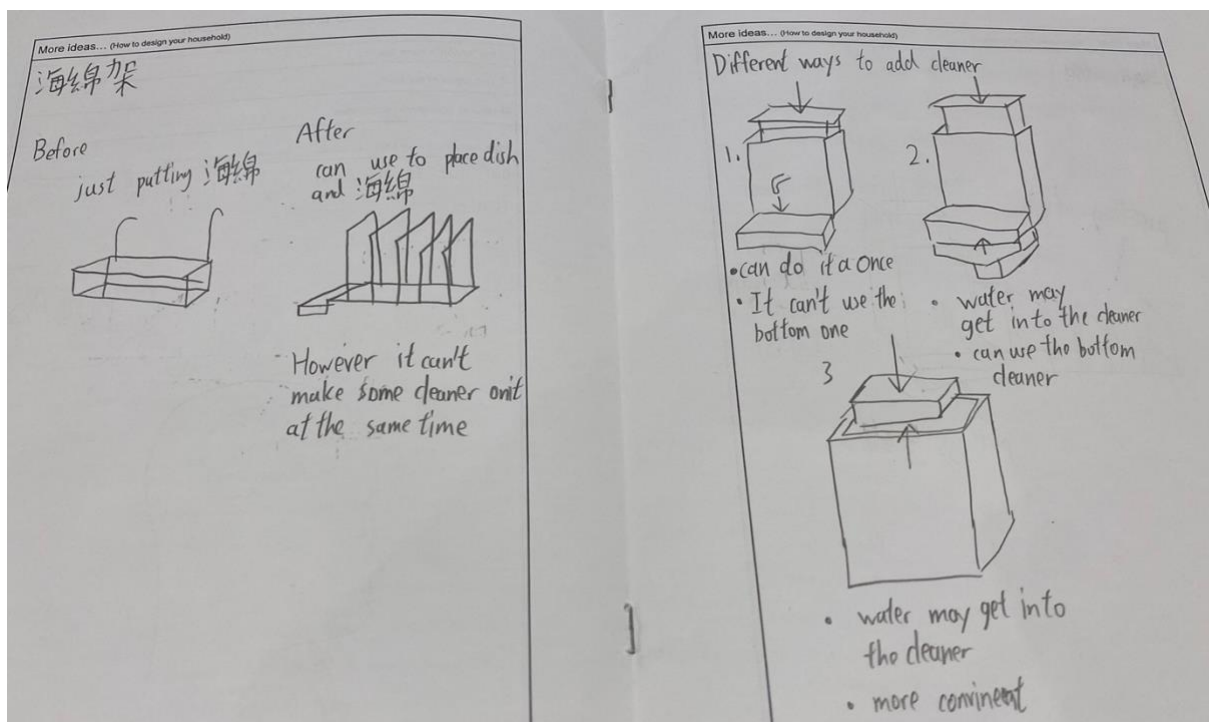 More ideas... (How to design your household)
海綿架
Before
just putting 海綿
After
can use to place dish
and 海綿
However it can't
make some cleaner onit
at the same time
More ideas... (How to design your household)
Different ways to add cleaner
1.
2.
•can do it a Once
• It can't use the
bottom one
• water may
get into the cleaner
• can use the bottom
cleaner
3
• water may get into
the cleaner
• more convineent